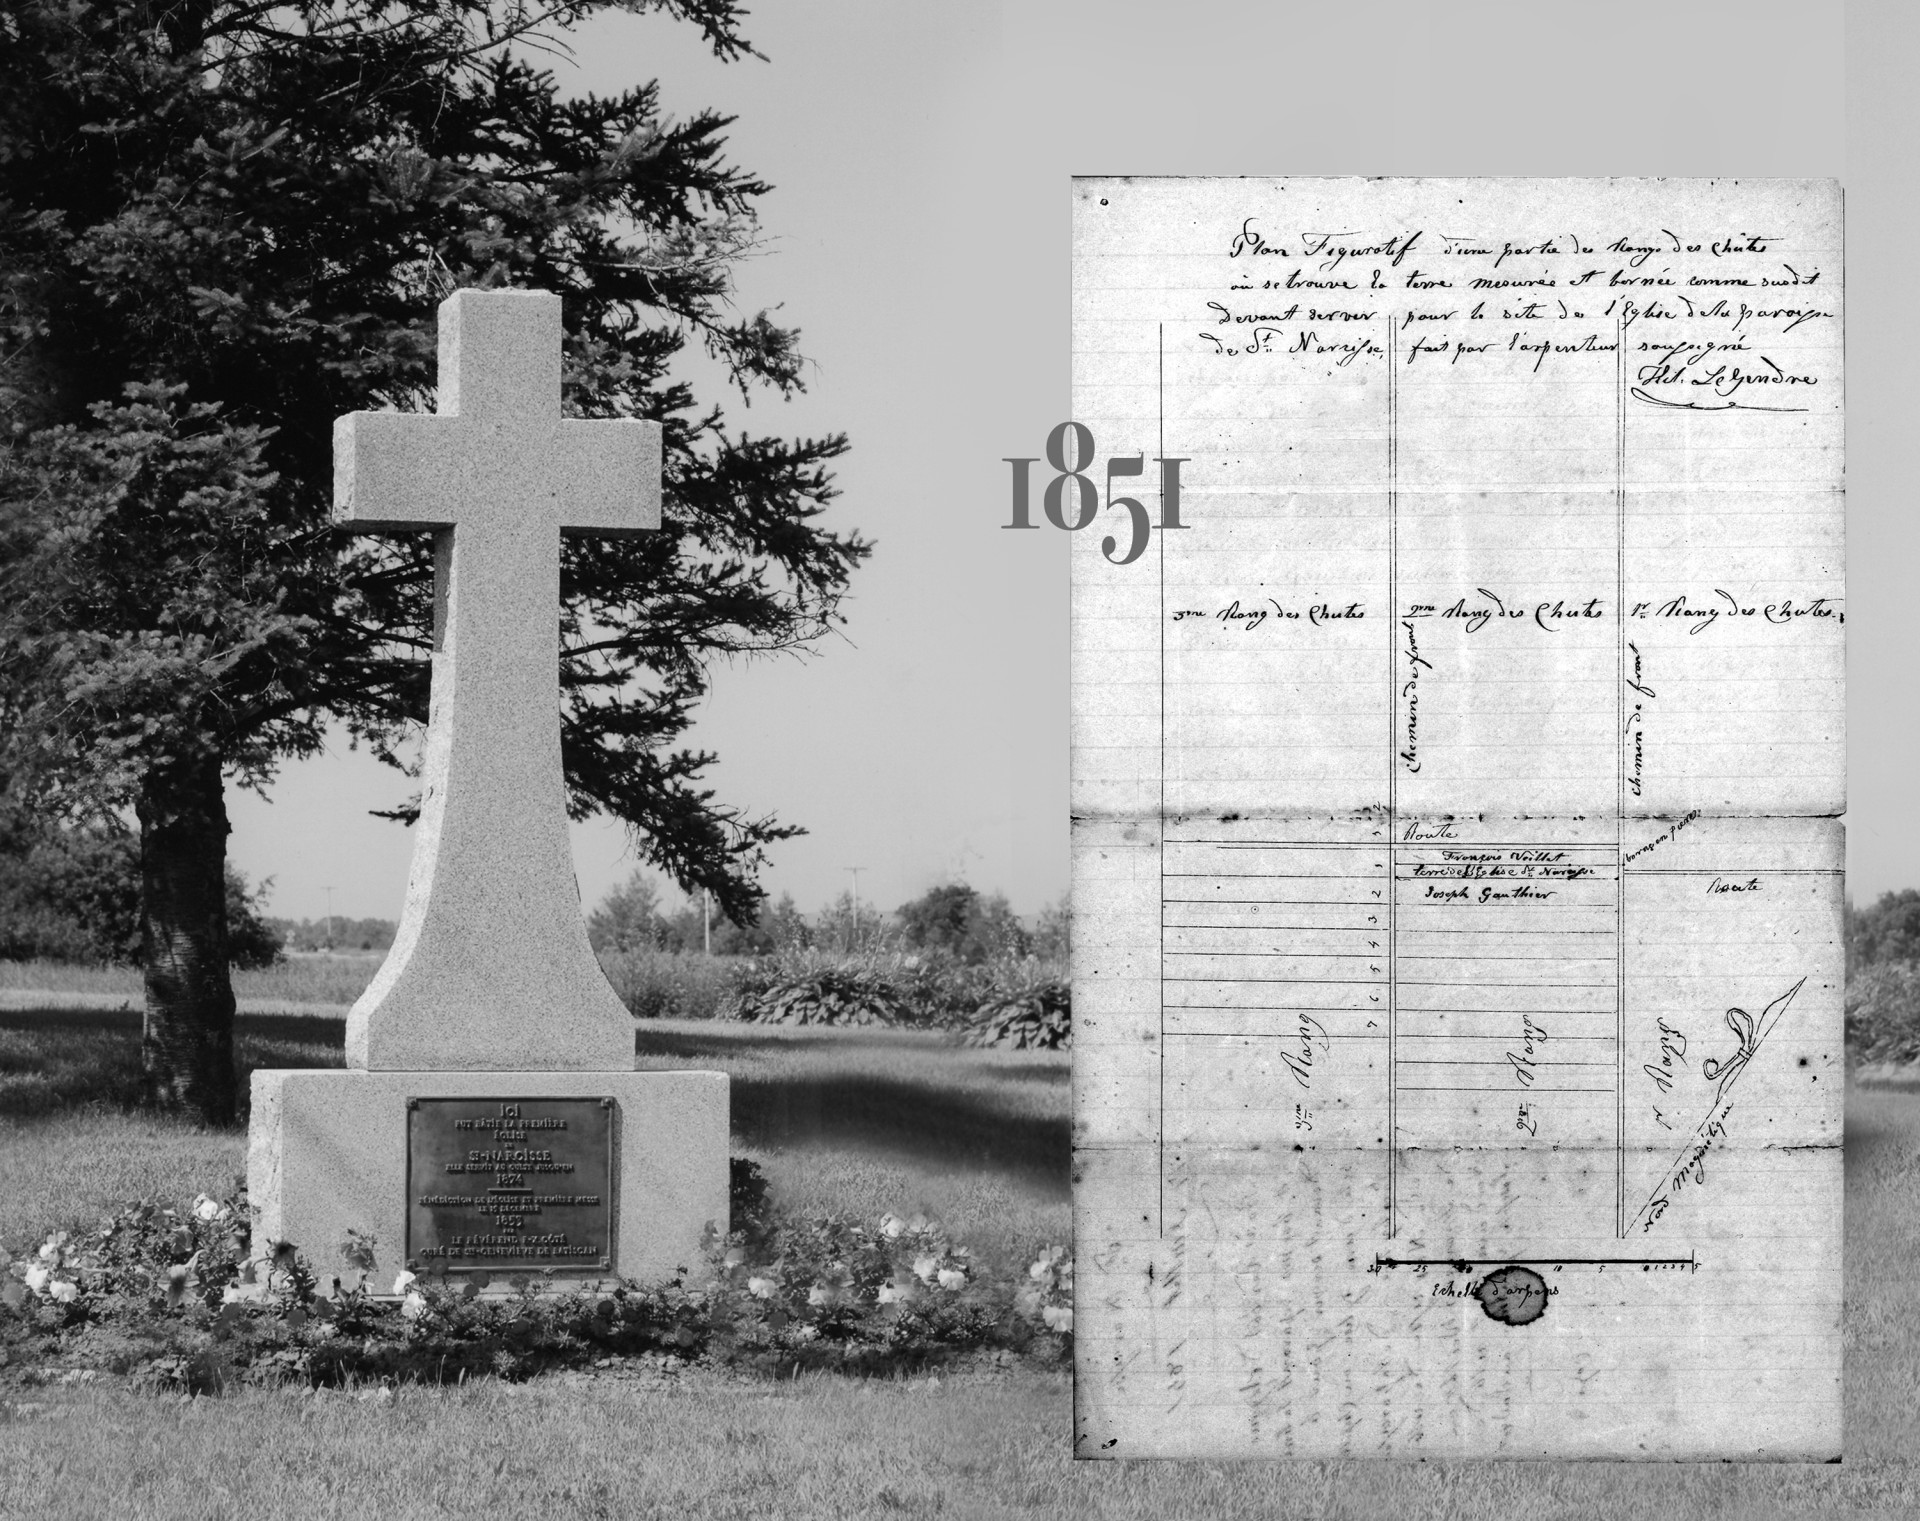 ICI
FUT BÂTIE LA PREMIÈRE
ÉGLISE
DE
ST-NARCISSE
ELLE SERVIT AU CULTE JUSQU'EN
1874
BÉNÉDICTION DE L'ÉGLISE ET PREMIÈRE MESSE
LE 15 DÉCEMBRE
PAR
LE RÉVÉREND F-X. CÔTÉ
CURÉ DE STE-GENEVIÈVE DE BATISCAN
1851
Plan Figuratif d'une partie des Rangs des Chûtes
où se trouve la terre mesurée et bornée comme susdit
Devant servir pour le site de l'Eglise de la paroisse
de St. Narcisse, fait par l'arpenteur soussigné
LeGendre
3me Rang des Chutes
2me Rang des Chutes
1r Rang des Chutes
chemin de front
chemin de front
Route
François Veillet
terre de l'Eglise St Narcisse
Joseph Gauthier
Route
2
1
1
2
3
4
5
6
7
3me Rang
2me Rang
1r Rang
Nord Magnétique
30 25 20 10 5 0 1 2 3 4 5
Echelle d'arpens